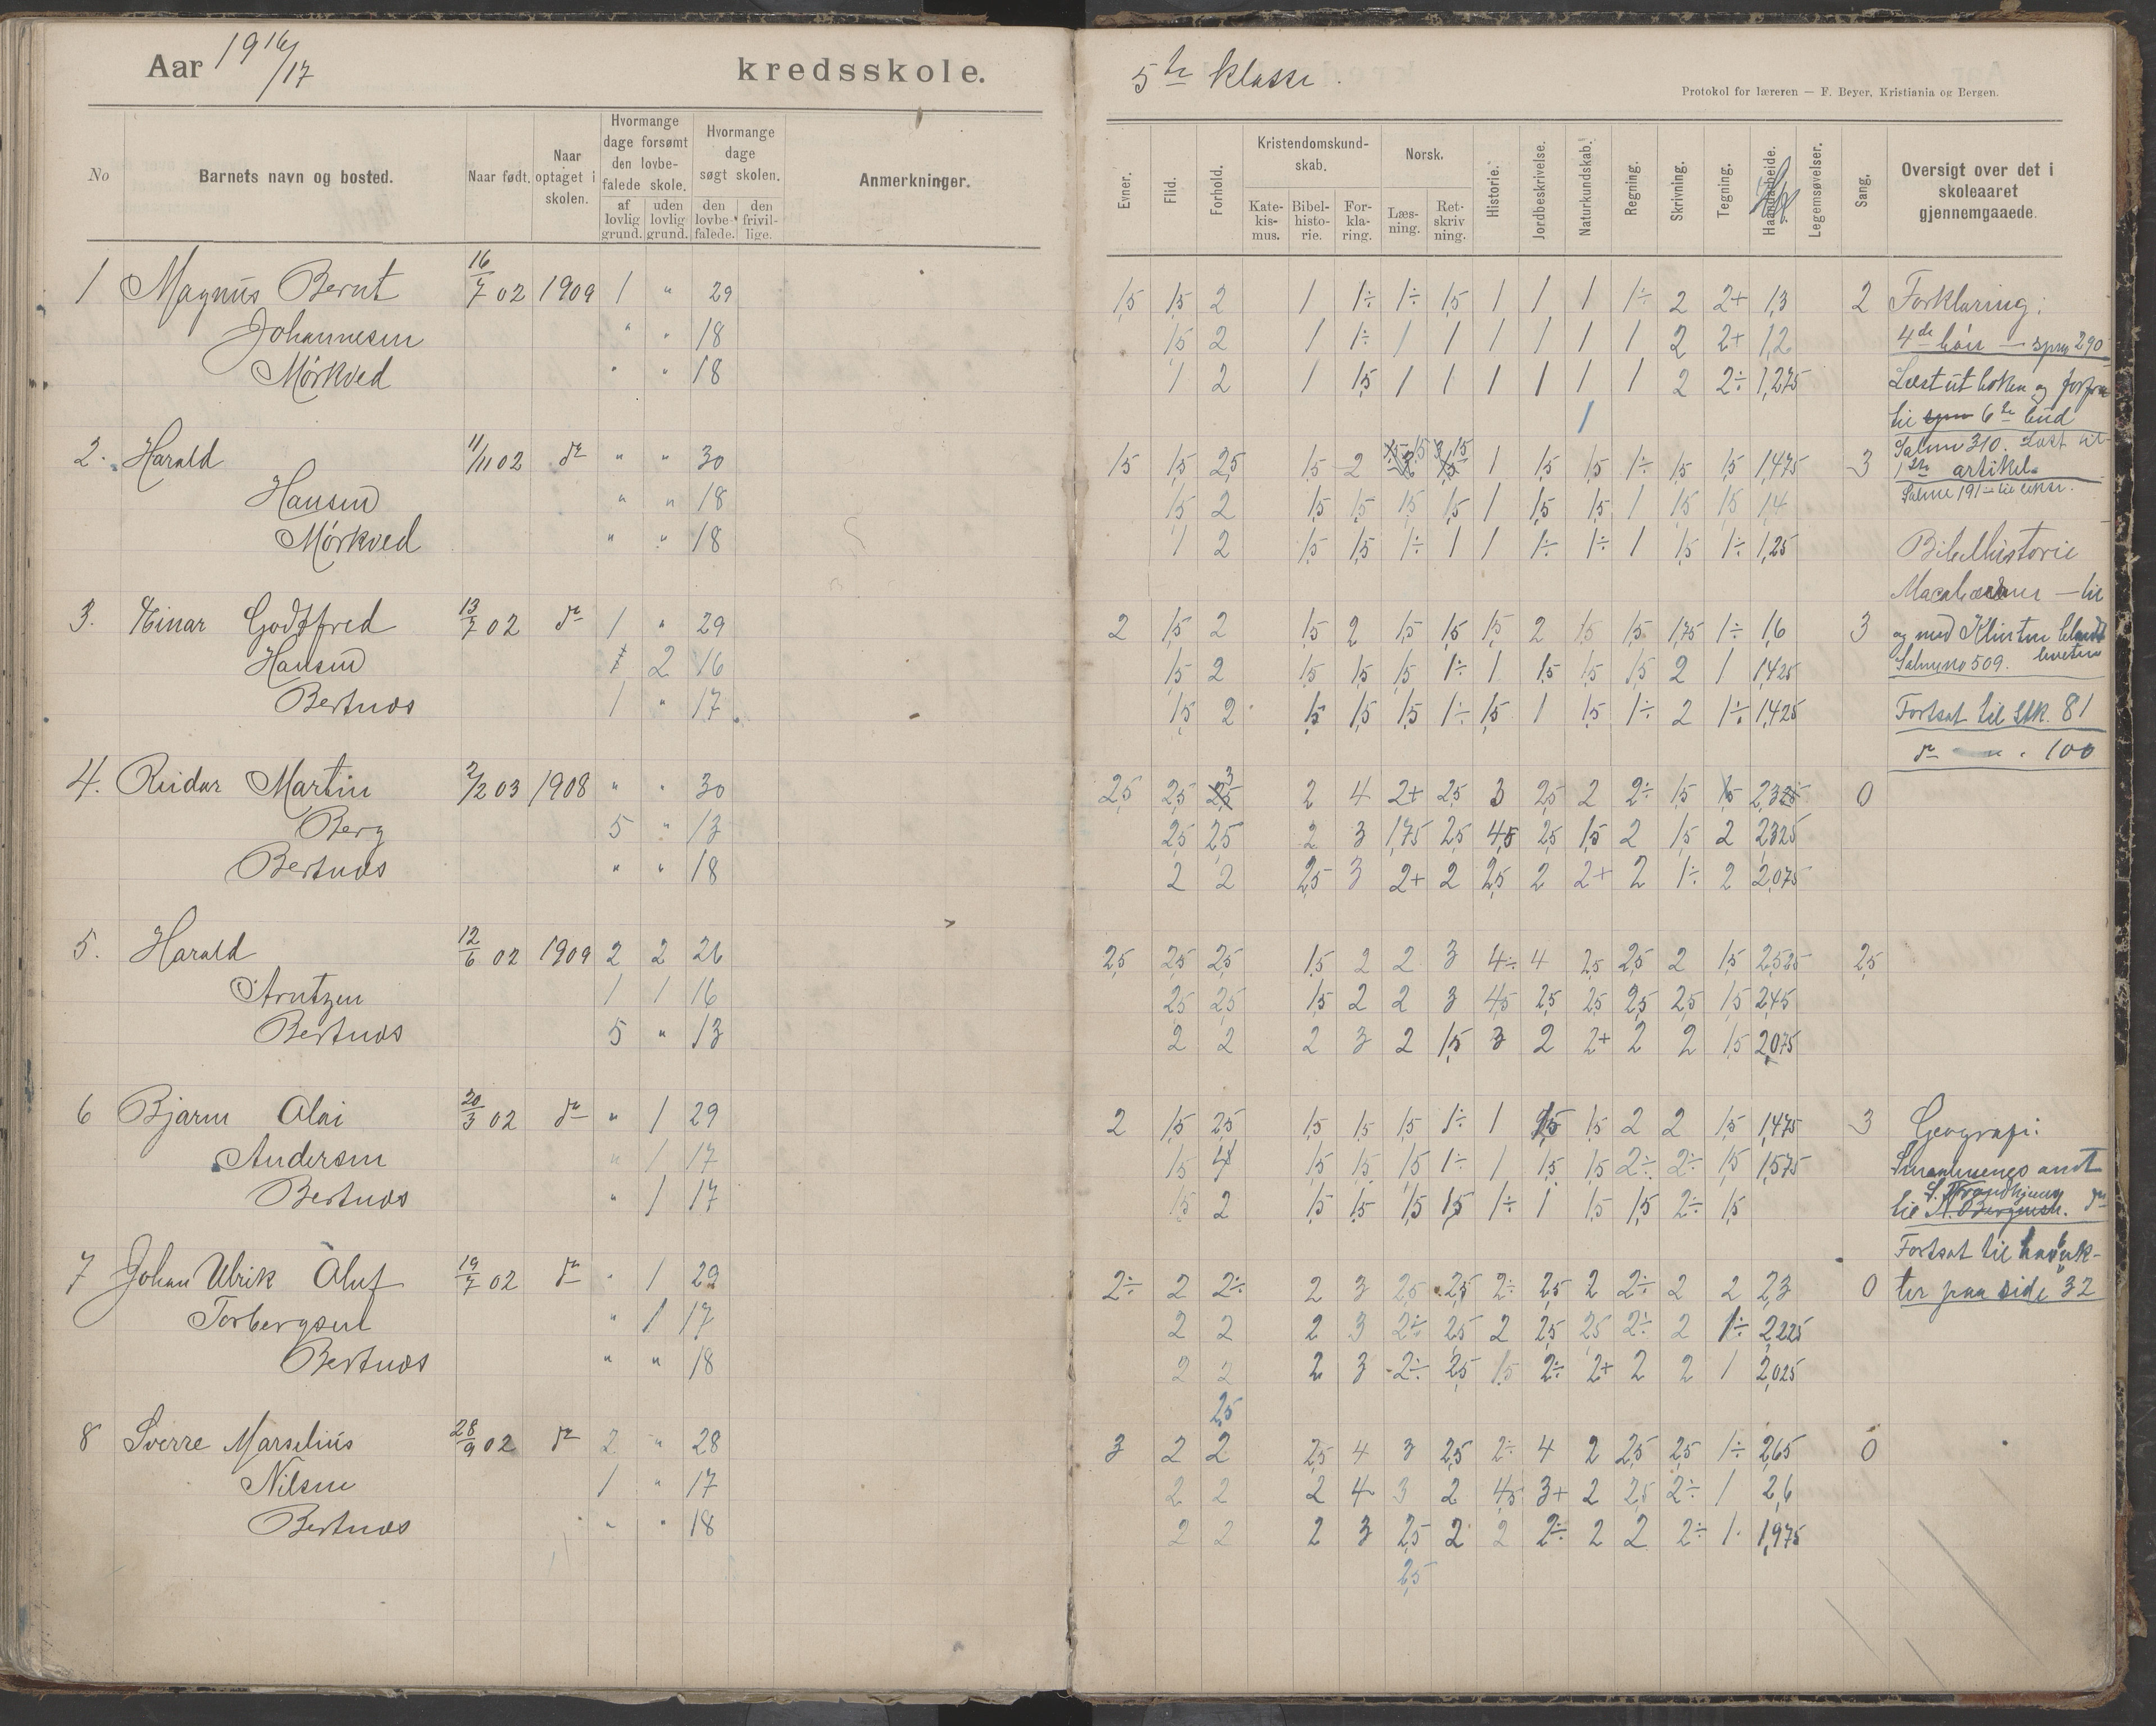 Aar 1916/17 kredsskole.
5te klasse.
Protokol for læreren — F. Beyer, Kristiania og Bergen.
No
Barnets navn og bosted.
Naar født.
Naar optaget i skolen.
Hvormange dage forsømt den lovbefalede skole.
af lovlig grund.
uden lovlig grund.
Hvormange dage søgt skolen.
den lovbefalede.
den frivillige.
Anmerkninger.
Evner.
Flid.
Forhold.
Kristendomskundskab.
Katekismus.
Bibelhistorie.
Forklaring.
Norsk.
Læsning.
Retskrivning.
Historie.
Jordbeskrivelse.
Naturkundskab.
Regning.
Skrivning.
Tegning.
Haandarbeide.
Legemsøvelser.
Sang.
Oversigt over det i skoleaaret gjennemgaaede.
1 Magnus Bernt 16/7 02 1909 1 " 29 1,5 1,5 2 1 1÷ 1÷ 1,5 1 1 1 1÷ 2 2+ 1,3 2 Forklaring:
Johannesen " " 18 1,5 2 1 1÷ 1 1 1 1 1 1 2 2+ 1,2
Mørkved " " 18 1 2 1 1,5 1 1 1 1 1 1 2 2÷ 1,275 Læst ut boken og
1 til 6te bud
Salme 310. Læst ut
2. Harald 11/11 02 do " " 30 1,5 1,5 2,5 1,5 2 1 1,5 1,5 1÷ 1,5 1,5 1,475 3 1ste artikel.
Hansen " " 18 1,5 2 1,5 1,5 1,5 1,5 1 1,5 1,5 1 1,5 1,5 1,4
Mørkved " " 18 1 2 1,5 1,5 1÷ 1 1 1÷ 1÷ 1 1,5 1÷ 1,25 Bibelhistorie
3. Einar Godtfred 13/7 02 do 1 " 29 2 1,5 2 1,5 2 1,5 1,5 1,5 2 1,5 1,5 1,75 1÷ 1,6 3 og med Klinten blandt hveten
Hansen 2 16 1,5 2 1,5 1,5 1,5 1÷ 1 1,5 1,5 1,5 2 1 1,425 Salme no 509.
Bertnes 1 " 17 1,5 2 1,5 1,5 1,5 1÷ 1,5 1 1,5 1÷ 2 1÷ 1,425 Fortsat til stk. 81
do 100
4. Reidar Martin 2/2 03 1908 " " 30 2,5 2,5 3 2 4 2+ 2,5 3 2,5 2 2÷ 1,5 1,5 2,325 0
Berg 5 " 13 2,5 2,5 2 3 1,75 2,5 4,5 2,5 1,5 2 1,5 2 2,325
Bertnes " " 18 2 2 2,5 3 2+ 2 2,5 2 2+ 2 1÷ 2 2,075
5. Harald 12/6 02 1909 2 2 26 2,5 2,5 2,5 1,5 2 2 3 4÷ 4 2,5 2,5 2 1,5 2,525 2,5
Arntzen 1 1 16 2,5 2,5 1,5 2 2 3 4,5 2,5 2,5 2,5 2,5 1,5 2,45
Bertnes 5 " 13 2 2 2 3 2 1,5 3 2 2+ 2 2 1,5 2,075
6 Bjarne Olai 20/3 02 do " 1 29 2 1,5 2,5 1,5 1,5 1,5 1÷ 1 1,5 1,5 2 2 1,5 1,475 3 Geografi:
Andersen " 1 17 1,5 4 1,5 1,5 1,5 1÷ 1 1,5 1,5 2÷ 2÷ 1,5 1,575 Smaalenenes amt
Bertnes " 1 17 1,5 2 1,5 1,5 1,5 1,5 1÷ 1 1,5 1,5 2÷ 1,5 til S. Trondhjems
Fortsat til
7 Johan Ulrik Oluf 19/7 02 do " 1 29 2÷ 2 2÷ 2 3 2,5 2,5 2÷ 2,5 2 2÷ 2 2 2,3 0 paa side 32
Torbergsen " 1 17 2 2 2 3 2÷ 2,5 2 2,5 2,5 2÷ 2 1÷ 2,225
Bertnes " " 18 2 2 2 3 2÷ 2,5 1,5 2÷ 2+ 2 2 1 2,025
2,5
8 Sverre Marselius 28/9 02 do 2 " 28 3 2 2 2,5 4 3 2,5 2÷ 4 2 2,5 2,5 1÷ 2,65 0
Nilsen 1 " 17 2 2 2 4 3 2 4,5 3+ 2 2,5 2÷ 1 2,6
Bertnes " " 18 2 2 2 3 2,5 2 2 2÷ 2 2 2÷ 1 1,975
2,5